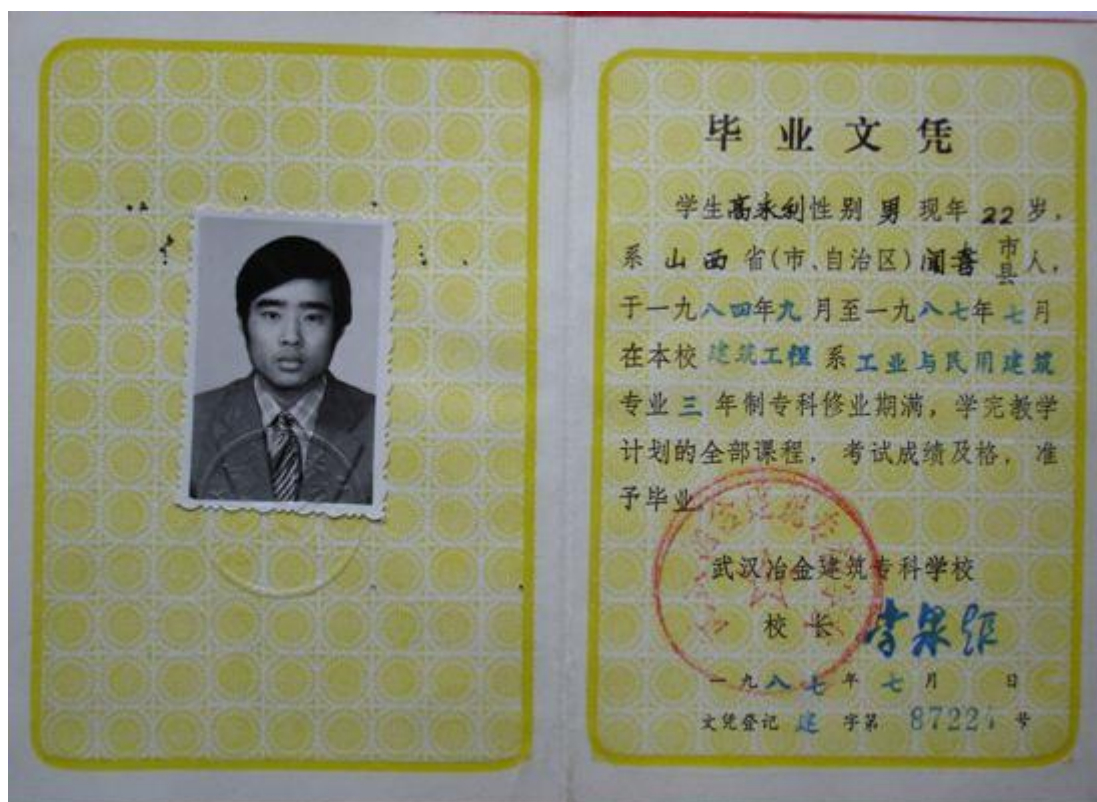 毕业文凭
学生高永利性别 男 现年 22 岁，
系 山西 省(市、自治区)闻喜 市县 人，
于一九八四年九月至一九八七年七月
在本校 建筑工程 系 工业与民用建筑
专业 三 年制专科修业期满，学完教学
计划的全部课程，考试成绩及格，准
予毕业
武汉冶金建筑专科学校
校 长
一九八七年七月 日
文凭登记 建 字第 8722 号